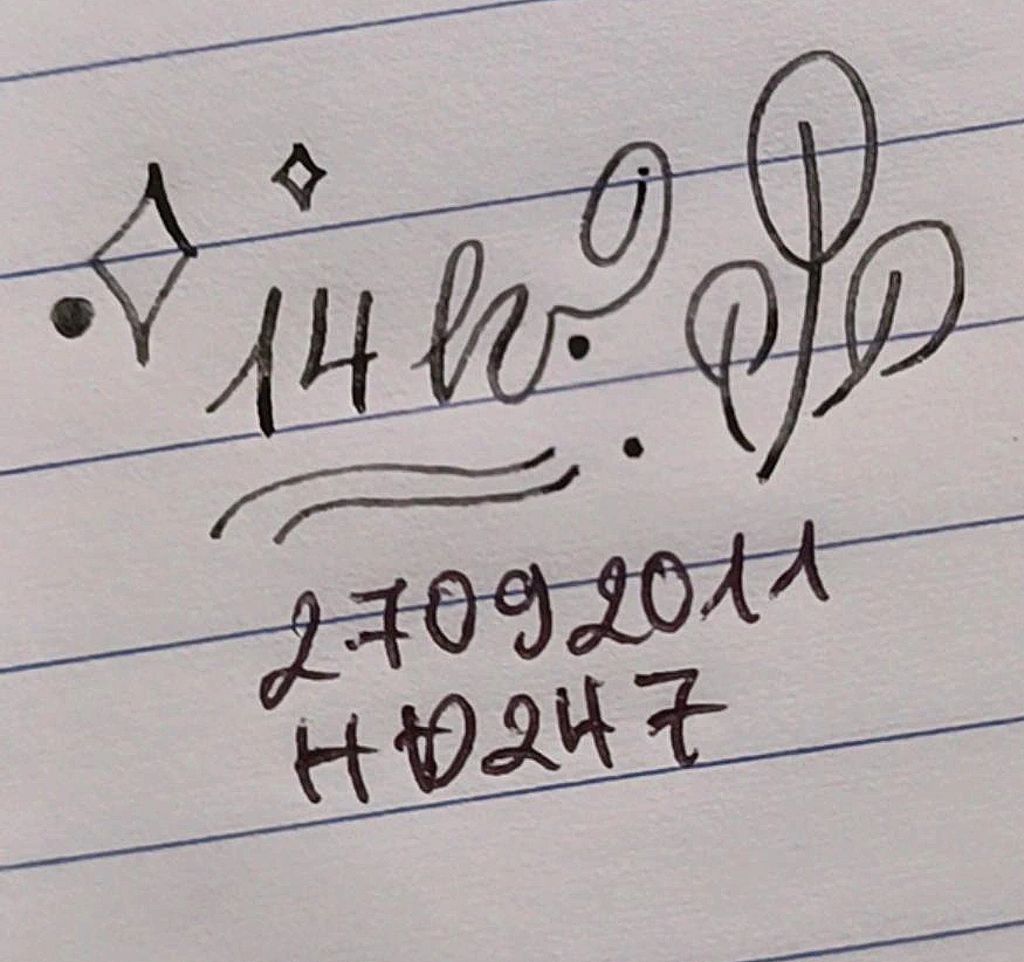 14 h.
27092011
HD247